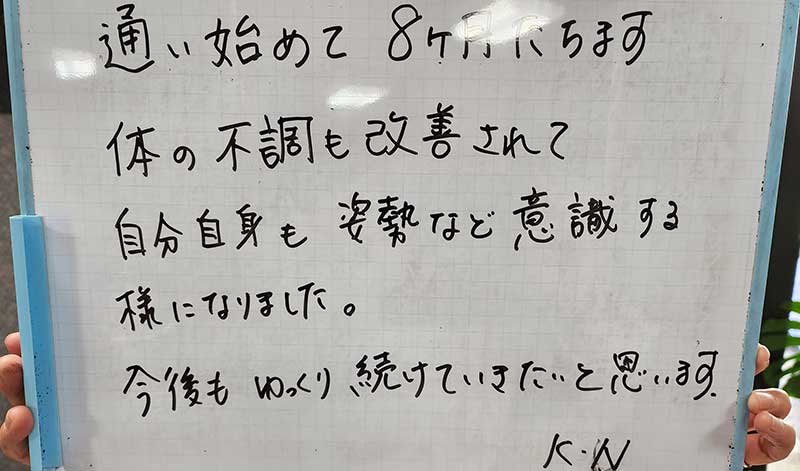 通い始めて 8ヶ月たちます
体の不調も改善されて
自分自身も 姿勢など意識する
様になりました。
今後も ゆっくり 続けていきたいと思います.
K.N